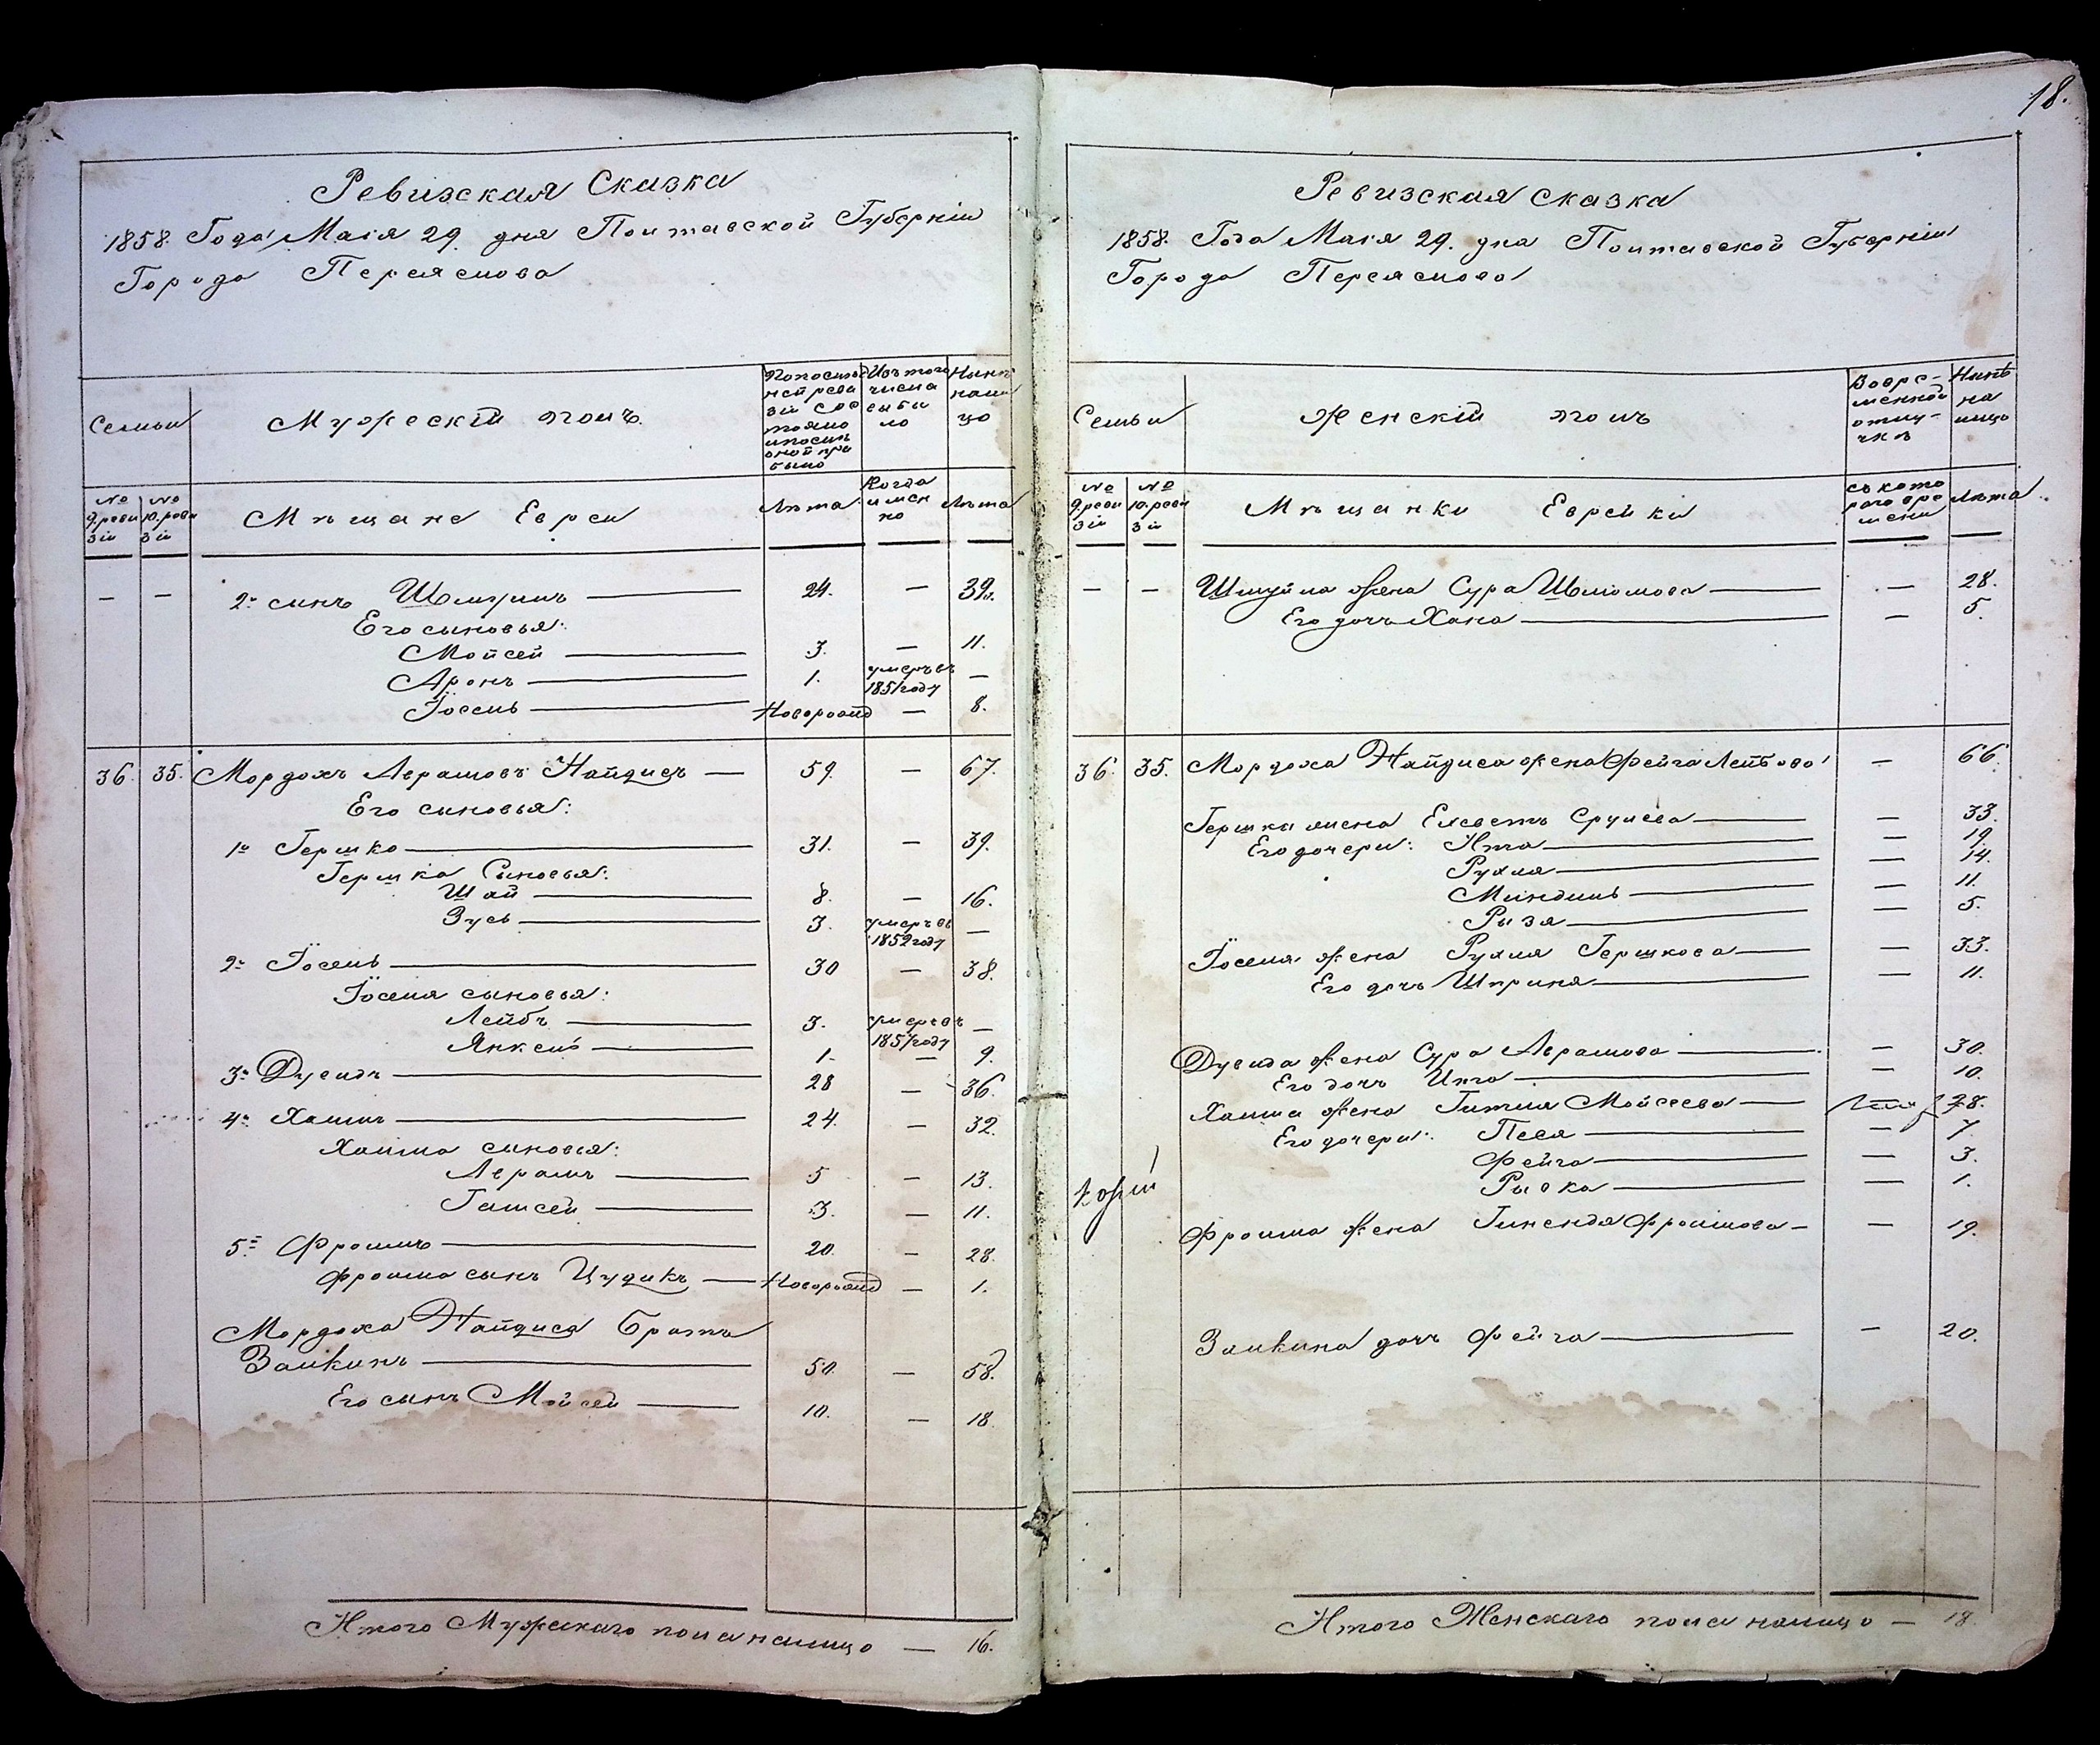 18.
Ревизская Сказка
1858. Года Маія 29. дня Полтавской Губерніи
Города Переяслова
Семьи
Мужескій полъ.
По последней ревизіи состояло и после оной прибыло
Изъ того числа выбыло
Ныне налицо
№ 9. ревизіи
№ 10. ревизіи
Мещане Евреи
Лета
Когда именно
Лета
— — 2й сынъ Шмуиль — 24. — 32.
Его сыновья:
Мойсей — 3. — 11.
Аронъ — 1. умеръ въ 1851 году —
Іосель — Новорожд — 8.
36. 35. Мордохъ Аврамовъ Найдисъ — 59. — 67.
Его сыновья:
1й Гершко — 31. — 39.
Гершка Сыновья:
Шай — 8. — 16.
Зусь — 3. умеръ въ 1852 году —
2й Іосель — 30 — 38.
Іоселя сыновья:
Лейбъ — 3. умеръ въ 1851 году —
Янкель — 1. — 9.
3й Дувидъ — 28 — 36.
4й Хаимъ — 24. — 32.
Хаима сыновья:
Аврамъ — 5 — 13.
Гамсей — 3. — 11.
5й Фроимъ — 20. — 28.
Фроима сынъ Цудикъ — Новорожд — 1.
Мордоха Найдиса Братъ
Залкинъ — 50. — 58.
Его сынъ Мойсей — 10. — 18.
Итого Мужескаго пола налицо — 16.
Ревизская сказка
1858. Года Маія 29. дня Полтавской Губерніи
Города Переяслова
Семьи
Женскій полъ
Во временной отлучке
Нынѣ налицо
№ 9. ревизіи
№ 10. ревизіи
Мещанки Еврейки
съ которого времени
Лета
— — Шмуйла жена Сура Шлиомова — — 28.
Его дочь Хана — — 5.
36. 35. Мордоха Найдиса жена Фейга Лейбова — 66.
Гершка жена Елсветъ Срулева — — 33.
Его дочери: Ита — — 19.
Рухля — — 14.
Миндиль — — 11.
Рызя — — 5.
Іоселя жена Рухля Гершкова — — 33.
Его дочь Шприня — — 11.
Дувида жена Сура Аврамова — — 30.
Его дочь Ципа — — 10.
Хаима жена Гитля Мойсеева — 28.
Его дочери: Песя — — 7.
Фейга — — 3.
Рывка — — 1.
Фроима жена Гинендя Фроимова — — 19.
Залкина дочь Фейга — — 20.
Итого Женскаго пола налицо — 18.